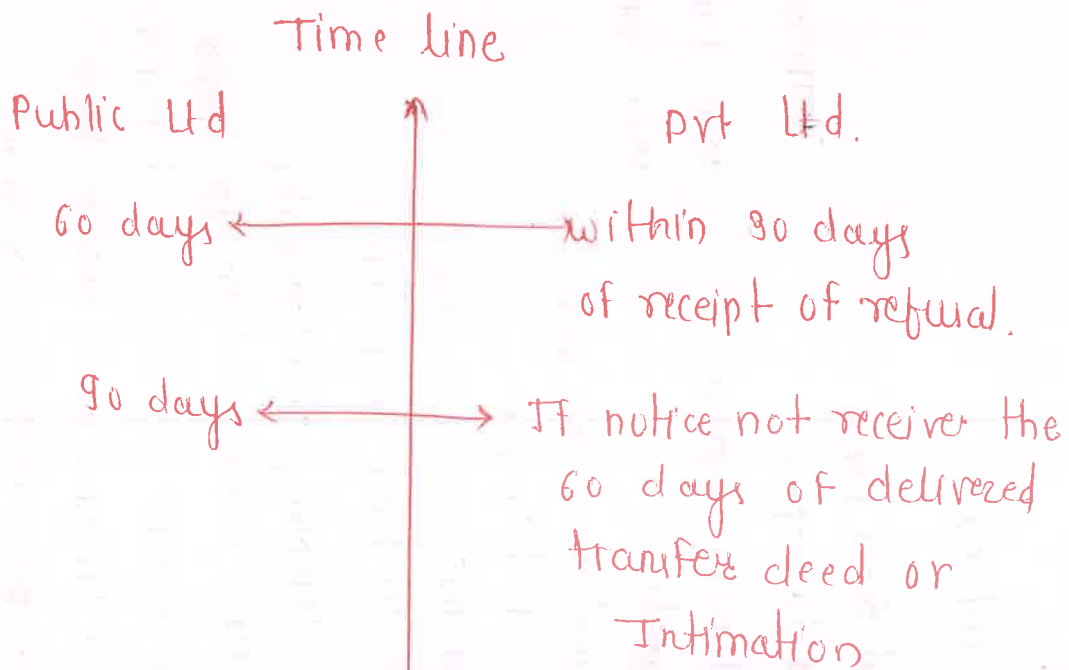 Time line
Public Ltd
Pvt Ltd.
60 days
within 90 days
of receipt of refusal.
90 days
If notice not receiver the
60 days of delivered
tranfer deed or
Intimation